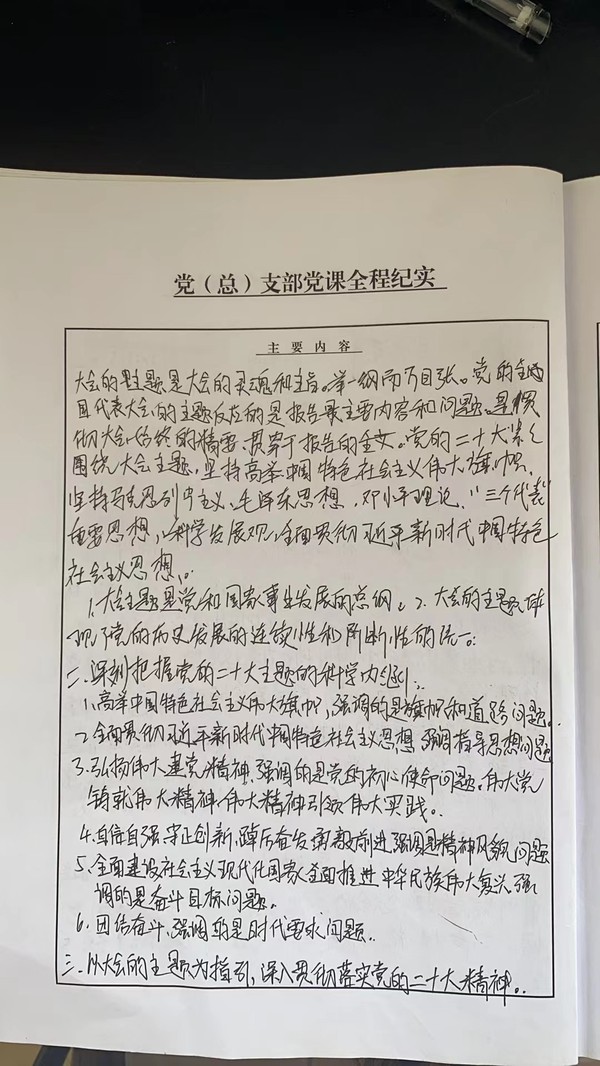 党（总）支部党课全程纪实
主要内容
大会的主题是大会的灵魂和主旨。举一纲而万目张。党的全国
代表大会的主题反应的是报告最主要内容和问题。是贯
彻大会始终的精要，贯穿于报告的全文。党的二十大紧紧
围绕大会主题，坚持高举中国特色社会主义伟大旗帜、
坚持马克思列宁主义、毛泽东思想、邓小平理论、“三个代表”
重要思想、科学发展观，全面贯彻习近平新时代中国特色
社会主义思想。
1、大会主题是党和国家事业发展的总纲。2、大会的主题体
现了党的历史发展的连续性和阶断性的统一。
二、深刻把握党的二十大主题的科学内涵
1、高举中国特色社会主义伟大旗帜，强调的是旗帜和道路问题。
2、全面贯彻习近平新时代中国特色社会主义思想，强调指导思想问题
3、弘扬伟大建党精神，强调的是党的初心使命问题。伟大党
铸就伟大精神，伟大精神引领伟大实践。
4、自信自强、守正创新，踔厉奋发、勇毅前进，强调是精神风貌问题
5、全面建设社会主义现代化国家，全面推进中华民族伟大复兴，强
调的是奋斗目标问题。
6、团结奋斗，强调的是时代要求问题。
三、以大会的主题为指引，深入贯彻落实党的二十大精神。